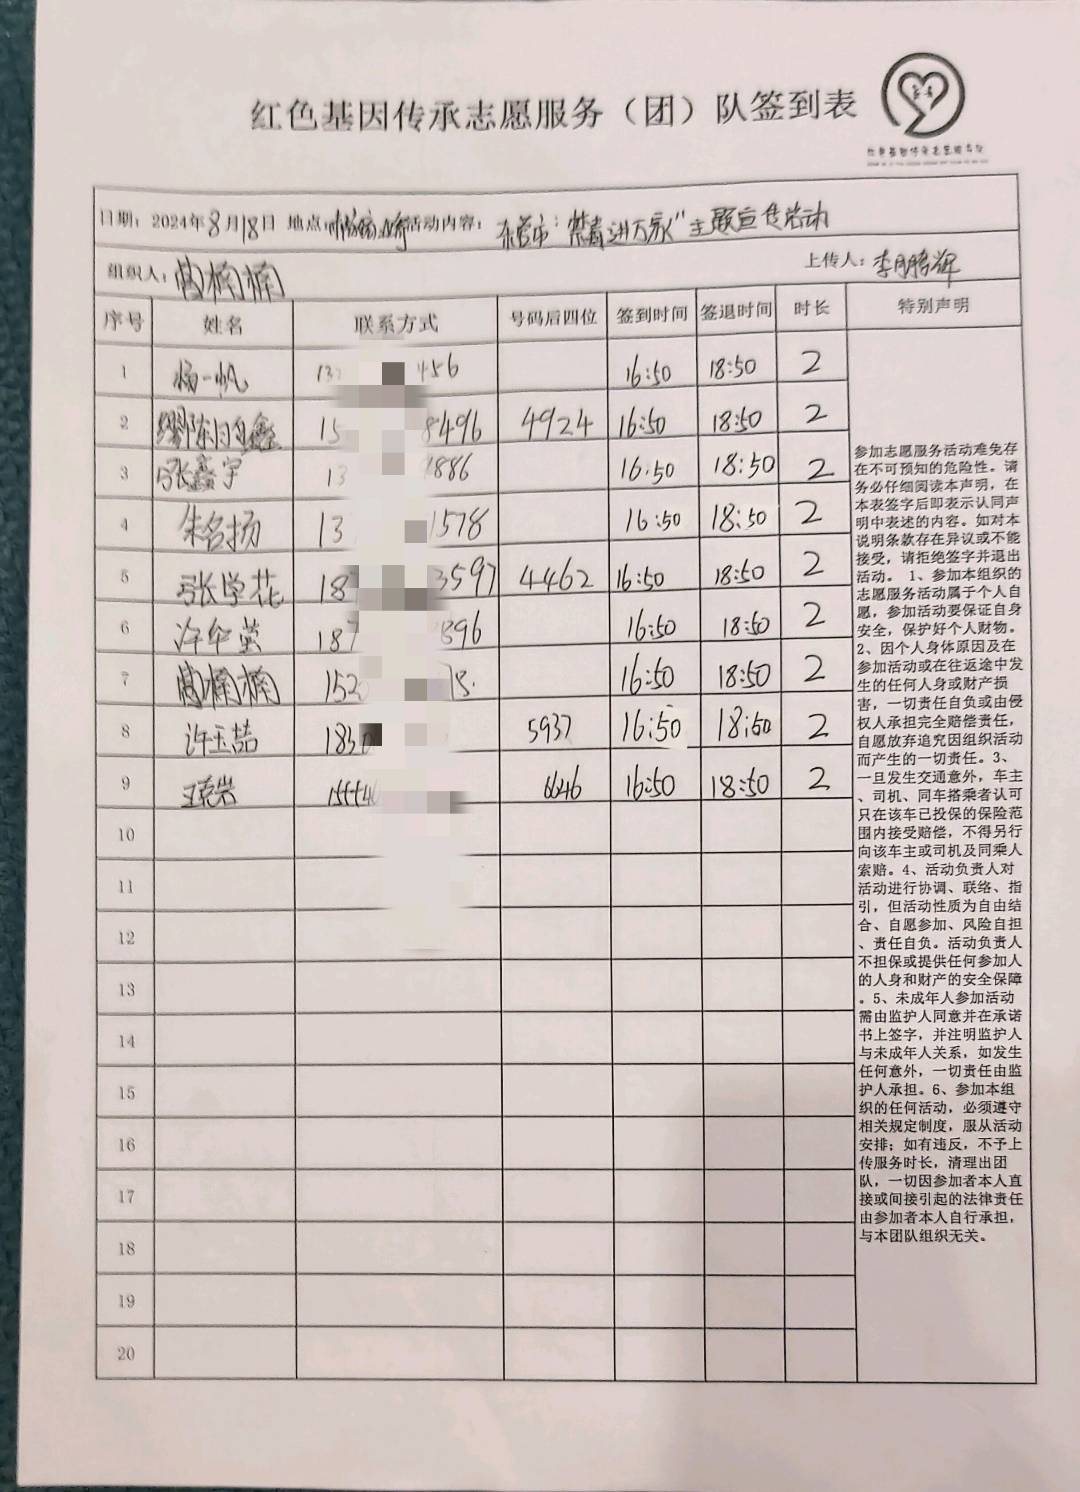 红色基因传承志愿服务（团）队签到表
日期：2024年8月18日 地点： 活动内容：东营市"禁毒进万家"主题宣传活动
组织人： 楠楠 上传人：李鹏辉
序号 姓名 联系方式 号码后四位 签到时间 签退时间 时长 特别声明
1 杨一帆 13 456 16:50 18:50 2
2 15 8496 4924 16:50 18:50 2
3 张鑫宇 13 1886 16:50 18:50 2
4 朱名扬 13 1578 16:50 18:50 2
5 张学花 187 3597 4462 16:50 18:50 2
6 187 896 16:50 18:50 2
7 楠楠 152 16:50 18:50 2
8 许玉喆 183 5937 16:50 18:50 2
9 6646 16:50 18:50 2
10
11
12
13
14
15
16
17
18
19
20
参加志愿服务活动难免存
在不可预知的危险性。请
务必仔细阅读本声明，在
本表签字后即表示认同声
明中表述的内容。如对本
说明条款存在异议或不能
接受，请拒绝签字并退出
活动。 1、参加本组织的
志愿服务活动属于个人自
愿，参加活动要保证自身
安全，保护好个人财物。
2、因个人身体原因及在
参加活动或在往返途中发
生的任何人身或财产损
害，一切责任自负或由侵
权人承担完全赔偿责任，
自愿放弃追究因组织活动
而产生的一切责任。3、
一旦发生交通意外，车主
、司机、同车搭乘者认可
只在该车已投保的保险范
围内接受赔偿，不得另行
向该车主或司机及同乘人
索赔。4、活动负责人对
活动进行协调、联络、指
引，但活动性质为自由结
合、自愿参加、风险自担
、责任自负。活动负责人
不担保或提供任何参加人
的人身和财产的安全保障
。5、未成年人参加活动
需由监护人同意并在承诺
书上签字，并注明监护人
与未成年人关系，如发生
任何意外，一切责任由监
护人承担。6、参加本组
织的任何活动，必须遵守
相关规定制度，服从活动
安排；如有违反，不予上
传服务时长，清理出团
队，一切因参加者本人直
接或间接引起的法律责任
由参加者本人自行承担，
与本团队组织无关。